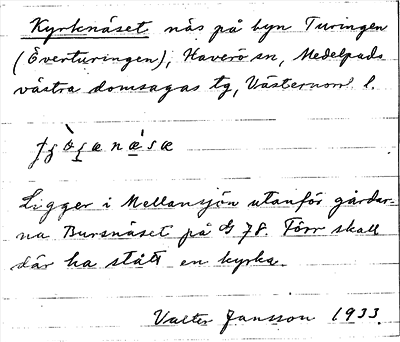 Kyrknäset näs på byn Turingen
(Överturingen), Haverö sn, Medelpads
västra domsagas tg, Västernorrl. l.
Ligger i Mellansjön utanför gårdar-
na Bursnäset på G 78. Förr skall
där ha stått en kyrka.
Valter Jansson 1933.